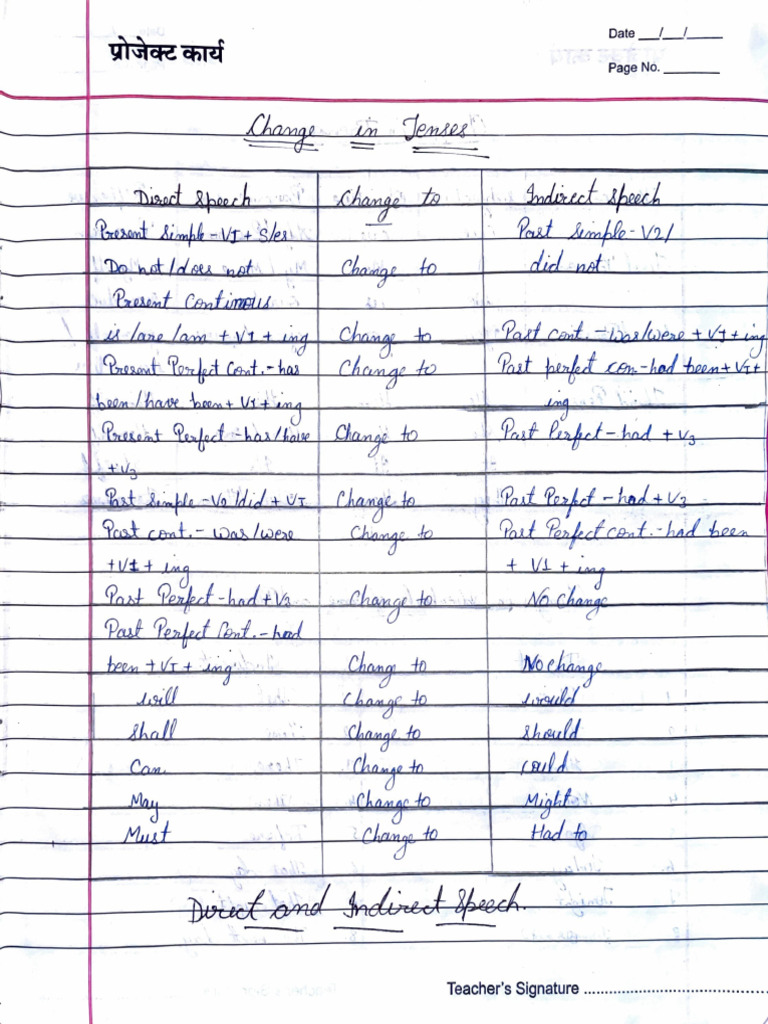 प्रोजेक्ट कार्य
Date __/__/____
Page No. ________
Change in Tenses
Direct Speech Change to Indirect Speech
Present Simple-VI + S/es Past Simple-V2/
Do not/does not Change to did not
Present Continous
is/are/am + VI + ing Change to Past cont.-was/were + VI + ing
Present Perfect Cont.-has Change to Past perfect con-had been + VI +
been/have been + VI + ing ing
Present Perfect-has/have Change to Past Perfect-had + V3
+V3
Past Simple-V2/did + VI Change to Past Perfect-had + V3
Past cont.-was/were Change to Past Perfect cont.-had been
+V1 + ing + V1 + ing
Past Perfect-had + V3 Change to No Change
Past Perfect Cont.-had
been + VI + ing Change to No change
will Change to would
Shall Change to Should
Can Change to Could
May Change to Might
Must Change to Had to
Direct and Indirect Speech.
Teacher's Signature ........................................